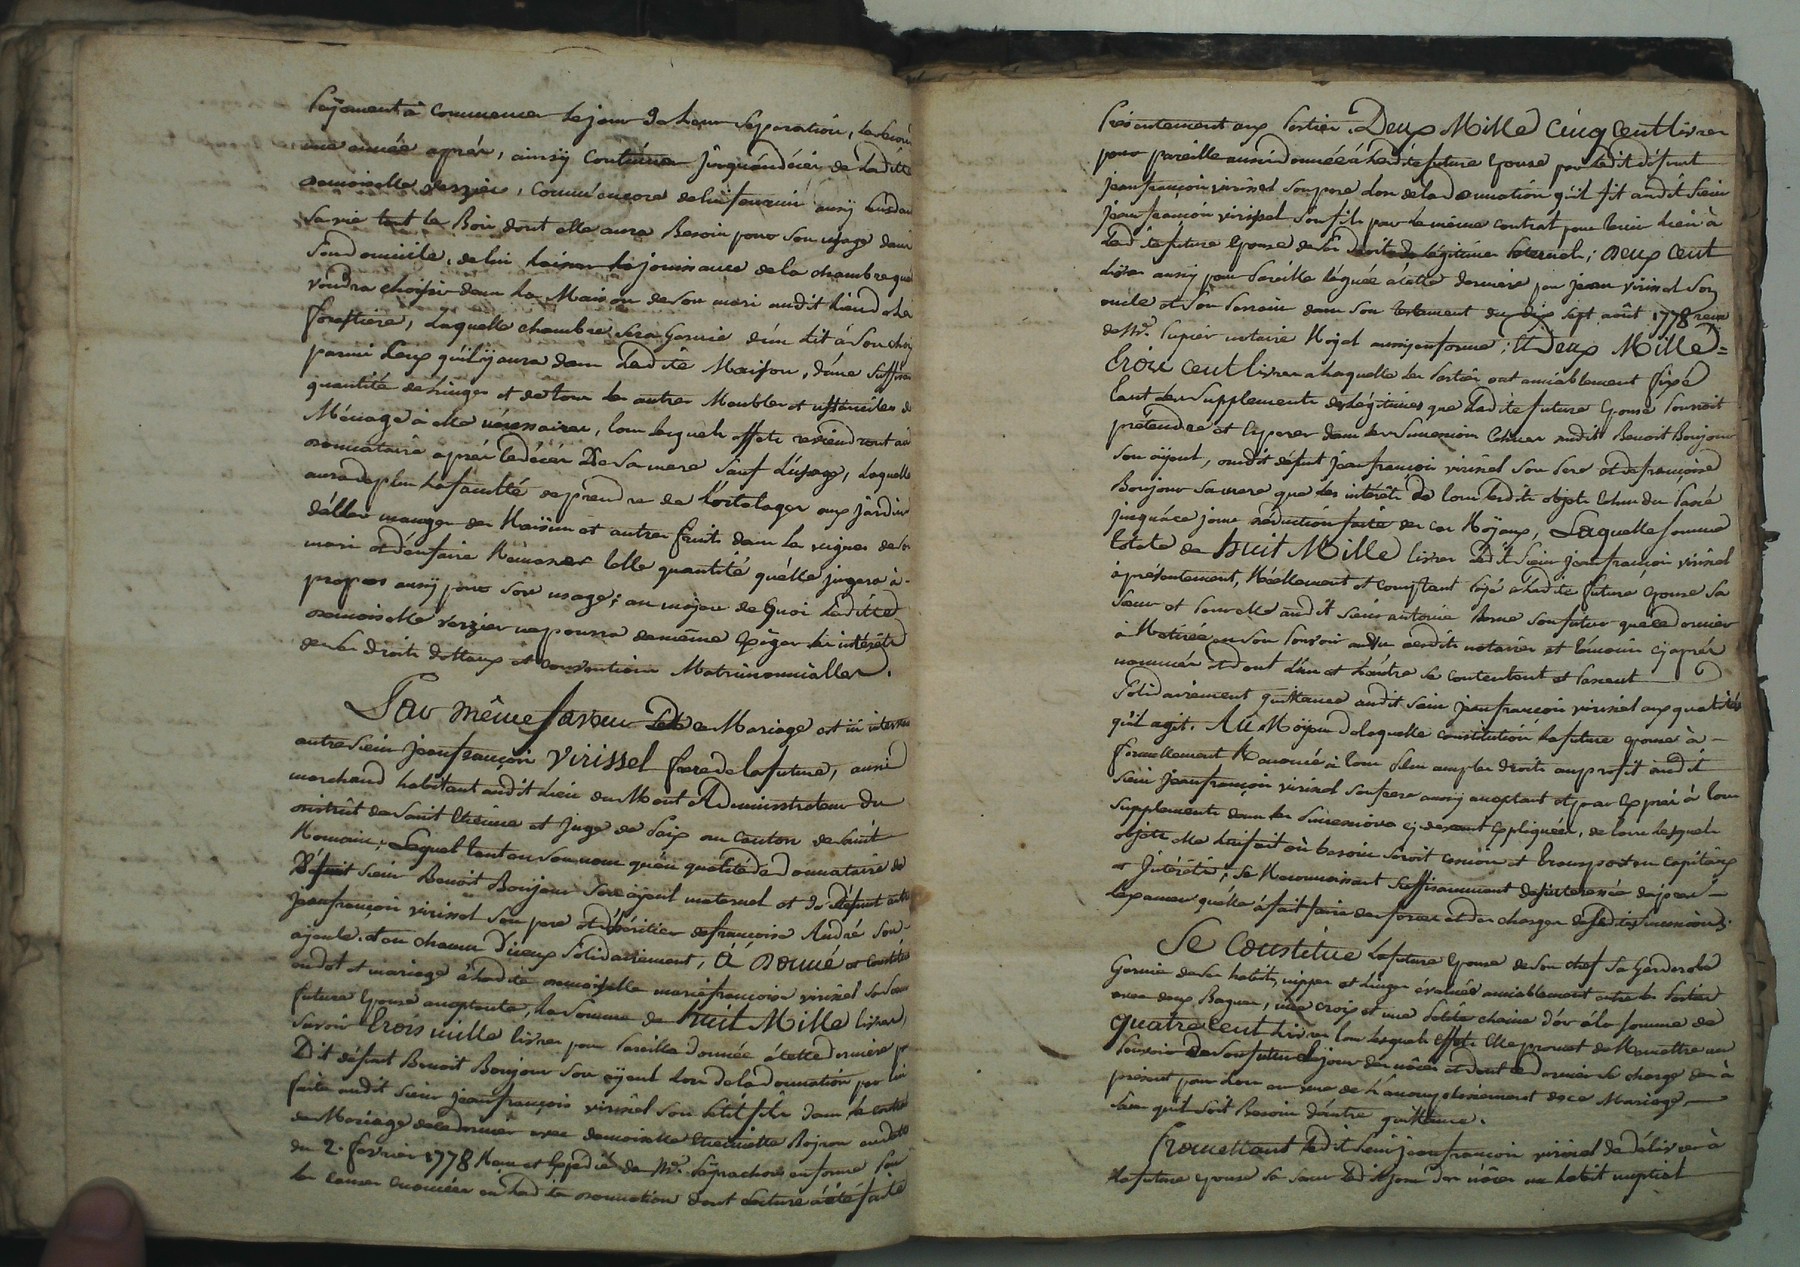 Payement à commencer le jour de leur Separation, le second
une année après, ainsy continuer jusqu'au décès de Ladite
demoiselle verzier, comme encore de lui fournir aussy pendant
Sa vie tout le Bois dont elle aura Besoin pour Son usage dans
Son domicile, de lui laisser la jouissance de la chambre que
voudra choisir dans La Maison de Son mari audit lieu de la
forestiere, Laquelle chambre Sera Garnie d'un lit à Son choix
parmi Ceux qu'il y aura dans Ladite Maison, d'une Suffisante
quantité de Linges et de tous les autres Meubles et ustanciles de
Ménage à elle nécessaires, tous lesquels effets reviendront au
donnataire après le décès De Sa mere Sauf L'usage, Laquelle
aura de plus La faculté de prendre de L'ortolages aux jardins
d'aller manger des Raisins et autres fruits dans les vignes de son
mari et d'en faire Ramasser telle quantité qu'elle jugera à
propos aussy pour Son usage; au moyen de Quoi Ladite
demoiselle verzier ne pourra de même Exiger les intérêts
de Ses droits dottaux et conventions Matrimonialles.
Par même faveur De ce Mariage est ici intervenu
autre Sieur Jean françois Virissel frere de la future, aussi
marchand habitant audit Lieu du Mont Administrateur du
district de Saint Etienne et Juge de Paix au Canton de Saint
Romain, Lequel tant en Son nom qu'en qualité de donnataire de
Défunt Sieur Benoit Bonjour Son ayeul maternel et de Défunt autre
Jean françois virissel Son pere et d'héritier de françoise André Son
ayeule et en chacun d'iceux Solidairement, A donné et constitué
en dot et mariage à Ladite demoiselle marie françoise virissel Sa Sœur
future Epouse acceptante, La Somme de huit Mille livres,
Savoir trois mille livres pour Pareille donnée à cette derniere par
Dit défunt Benoit Bonjour Son ayeul Lors de la donnation par lui
faite audit Sieur Jean françois virissel Son petit fils dans le contrat
de Mariage de ce dernier avec demoiselle Etiennette Rojron en date
du 2. fevrier 1778 Reçu et Expedié de Mr. Peyrachon en forme Pour
les causes énoncées en Ladite donnation dont Lecture a été faite
Présentement aux Parties. Deux Mille Cinq Cent livres
pour pareille aussi donnée à Ladite future Epouse par Ledit défunt
Jean françois virissel Son pere Lors de la donnation qu'il fit audit Sieur
Jean françois virissel Son fils par le même contrat pour tenir Lieu à
Ladite future Epouse de Ses droits de Légitime Paternels; deux Cent
Livres aussy pour Pareille léguée à cette derniere par Jean virissel Son
oncle et Son Parrain dans Son testament du dix Sept août 1778 reçu
de Mr. Pupier notaire Royal aussy en forme; Et Deux Mille
trois Cent Livres à Laquelle les Parties ont amiablement fixé
tant les Supplements de Légitimes que Ladite future Epouse Pourroit
prétendre et Esperer dans les Successions Echues dudit Benoit Bonjour
Son ayeul, dudit défunt Jean françois virissel Son Pere et de françoise
Bonjour Sa mere que Les intérêts de tous lesdits objets Echus du Passé
jusqu'à ce jour déduction faite de ceux Royaux, Laquelle Somme
totale de huit Mille livres Ledit Sieur Jean françois virissel
a présentement, Réellement et comptant Payé à Ladite future Epouse Sa
Sœur et Pour elle audit Sieur antoine Son futur que ce dernier
a Retirée en Son Pouvoir au vu desdits notaires et témoins cy après
nommés et dont L'un et L'autre Se contentent et Passent
Solidairement quittance audit Sieur Jean françois virissel aux qualités
qu'il agit. Au Moyen de laquelle constitution La future Epouse a
formellement Renoncé à tous Plus amples droits au profit dudit
Sieur Jean françois virissel Son frere aussy acceptant et par Exprès à tous
Supplements dans les Successions cy devant Expliquées, de tous lesquels
objets elle lui fait où besoin Seroit cession et transport en capitaux
et Intérêts; Se Reconnoissant Suffisamment desinteressée d'après
L'examen qu'elle a fait faire des forces et des charges desdites Successions.
Se Constitue La future Epouse de Son chef Sa Garderobe
Garnie de Ses habits, nippes et Linges évaluée amiablement entre les Parties
avec deux Bagues, une Croix et une Petite chaine d'or à la Somme de
quatre Cent Livres tous lesquels effets Elle promet de Remettre au
Pouvoir de Son futur le jour des nôces et dont ce dernier Se charge dès à
présent pour Lors au vue de L'accomplissement de ce Mariage
Sans qu'il Soit Besoin d'autre quittance.
Promettant Ledit Sieur Jean françois virissel de délivrer à
La future Epouse Sa Sœur Ledit jour des nôces un habit nuptial